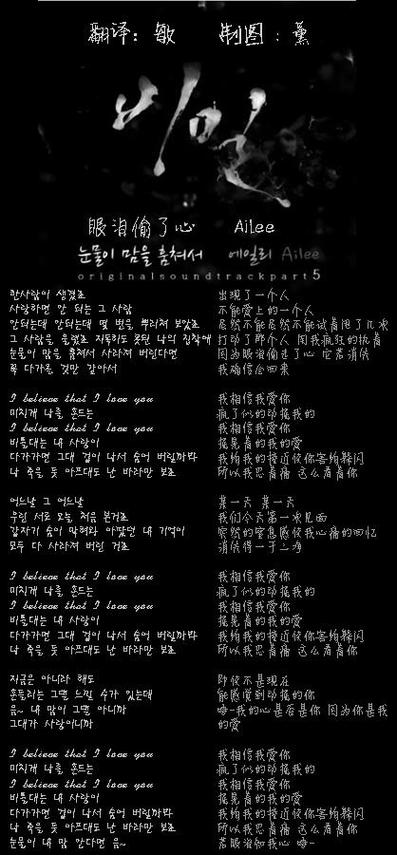 翻译：敏 制图：薰
비밀
眼泪偷了心 Ailee
눈물이 맘을 훔쳐서 에일리 Ailee
originalsoundtrackpart5
한사람이 생겼죠 出现了一个人
사랑하면 안 되는 그 사람 不能爱上的一个人
안되는데 안되는데 몇 번을 뿌리쳐 보았죠 居然不能居然不能试着甩了几次
그 사람을 울렸죠 지독히도 못된 나의 집착에 打动了那个人 因我疯狂的执着
눈물이 맘을 훔쳐서 사라져 버린다면 因为眼泪偷走了心 它若消失
꼭 다가올 것만 같아서 我确信会回来
I believe that I love you 我相信我爱你
미치게 나를 흔드는 疯了似的动摇我的
I believe that I love you 我相信我爱你
비틀대는 내 사랑이 摇晃着的我的爱
다가가면 그대 겁이 나서 숨어 버릴까봐 我怕我的接近使你害怕躲闪
나 죽을 듯 아프대도 난 바라만 보죠 所以我忍着痛 这么看着你
어느날 그 어느날 某一天 某一天
우린 서로 오늘 처음 본거죠 我们今天第一次见面
갑자기 숨이 막혀와 아팠던 내 기억이 突然的窒息感使我心痛的回忆
모두 다 사라져 버린 거죠 消失得一干二净
I believe that I love you 我相信我爱你
미치게 나를 흔드는 疯了似的动摇我的
I believe that I love you 我相信我爱你
비틀대는 내 사랑이 摇晃着的我的爱
다가가면 그대 겁이 나서 숨어 버릴까봐 我怕我的接近使你害怕躲闪
나 죽을 듯 아프대도 난 바라만 보죠 所以我忍着痛 这么看着你
지금은 아니라 해도 即使不是现在
흔들리는 그댈 느낄 수가 있는데 能感觉到动摇的你
음~ 내 맘이 그댈 아니까 嗯~我的心是否是你 因为你是我
그대가 사랑이니까 的爱
I believe that I love you 我相信我爱你
미치게 나를 흔드는 疯了似的动摇我的
I believe that I love you 我相信我爱你
비틀대는 내 사랑이 摇晃着的我的爱
다가가면 그대 겁이 나서 숨어 버릴까봐 我怕我的接近使你害怕躲闪
나 죽을 듯 아프대도 난 바라만 보죠 所以我忍着痛 这么看着你
눈물이 내 맘 안다면 음~ 若眼泪知我心 嗯~